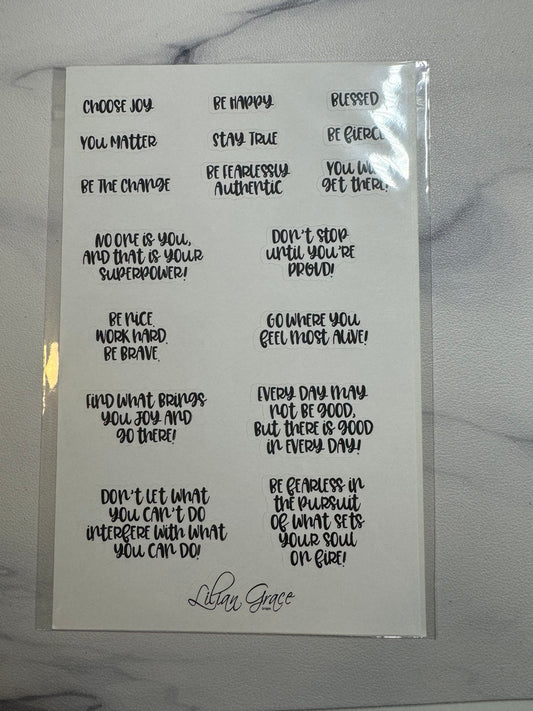 CHOOSE JOY
BE HAPPY
BLESSED
YOU MATTER
STAY TRUE
BE FIERCE
BE THE CHANGE
BE FEARLESSLY
AUTHENTIC
YOU
GET THERE!
NO ONE IS YOU,
AND THAT IS YOUR
SUPERPOWER!
DON'T STOP
UNTIL YOU'RE
PROUD!
BE NICE.
WORK HARD.
BE BRAVE.
GO WHERE YOU
FEEL MOST ALIVE!
FIND WHAT BRINGS
YOU JOY AND
GO THERE!
EVERY DAY MAY
NOT BE GOOD,
BUT THERE IS GOOD
IN EVERY DAY!
DON'T LET WHAT
YOU CAN'T DO
INTERFERE WITH WHAT
YOU CAN DO!
BE FEARLESS IN
THE PURSUIT
OF WHAT SETS
YOUR SOUL
ON FIRE!
Lilian Grace